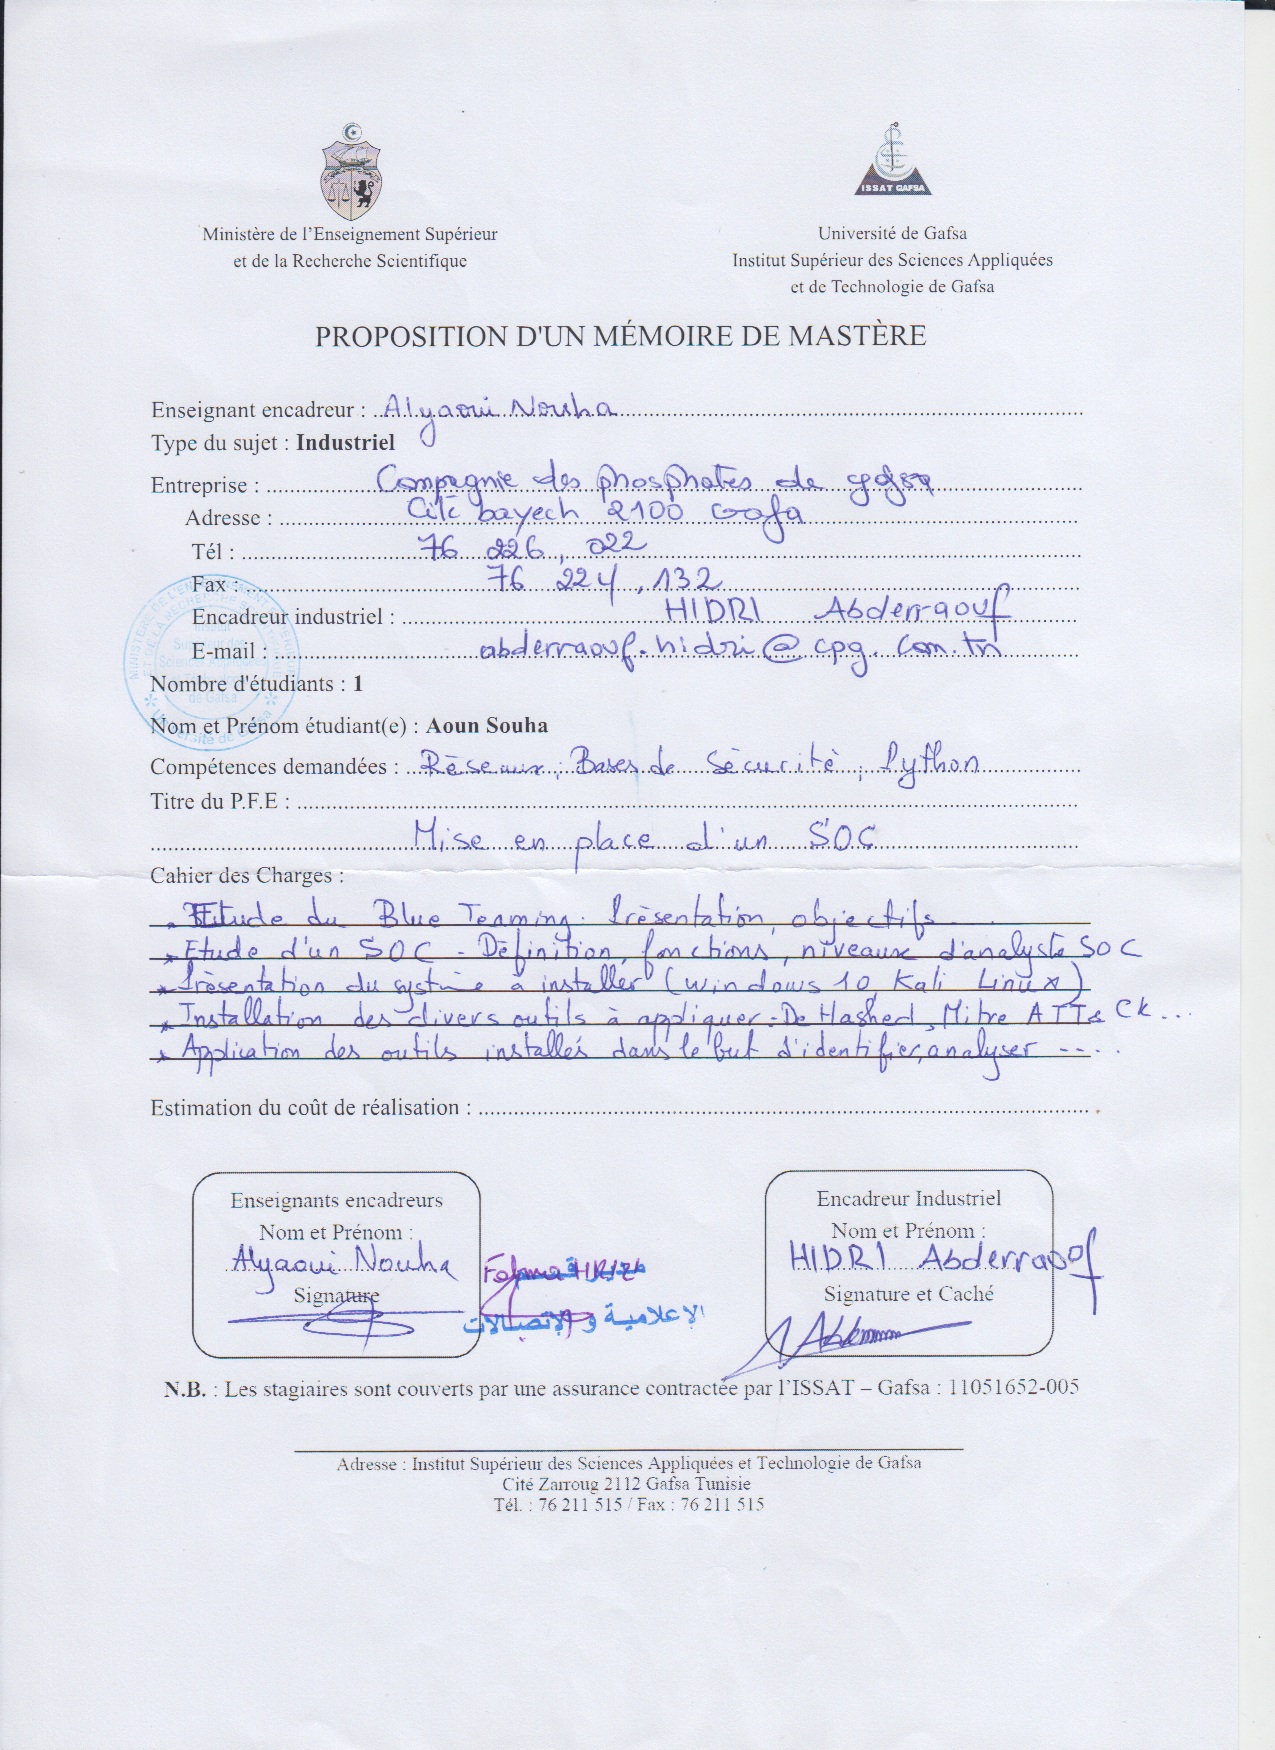 ISSAT GAFSA
Ministère de l'Enseignement Supérieur
et de la Recherche Scientifique
Université de Gafsa
Institut Supérieur des Sciences Appliquées
et de Technologie de Gafsa
PROPOSITION D'UN MÉMOIRE DE MASTÈRE
Enseignant encadreur : Alyaoui Nouha
Type du sujet : Industriel
Entreprise : Compagnie des phosphates de gafsa
Adresse : Cité bayech 2100 Gafsa
Tél : 76 226, 022
Fax : 76 224, 132
Encadreur industriel : HIDRI Abderraouf
E-mail : abderraouf.hidri@cpg.com.tn
Nombre d'étudiants : 1
Nom et Prénom étudiant(e) : Aoun Souha
Compétences demandées : Réseaux, Bases de Sécurité, Python
Titre du P.F.E :
Mise en place d'un SOC
Cahier des Charges :
* Etude du Blue Teaming. Présentation, objectifs
* Etude d'un SOC - Définition, fonctions, niveaux d'analyste SOC
* Présentation du système à installer (Windows 10, Kali Linux)
* Installation des divers outils à appliquer - DeHashed, Mitre ATT&CK...
* Application des outils installés dans le but d'identifier, analyser ....
Estimation du coût de réalisation :
Enseignants encadreurs
Nom et Prénom :
Alyaoui Nouha
Signature
Encadreur Industriel
Nom et Prénom :
HIDRI Abderraouf
Signature et Caché
الإعلامية و الإتصالات
N.B. : Les stagiaires sont couverts par une assurance contractée par l'ISSAT – Gafsa : 11051652-005
Adresse : Institut Supérieur des Sciences Appliquées et Technologie de Gafsa
Cité Zarroug 2112 Gafsa Tunisie
Tél. : 76 211 515 / Fax : 76 211 515